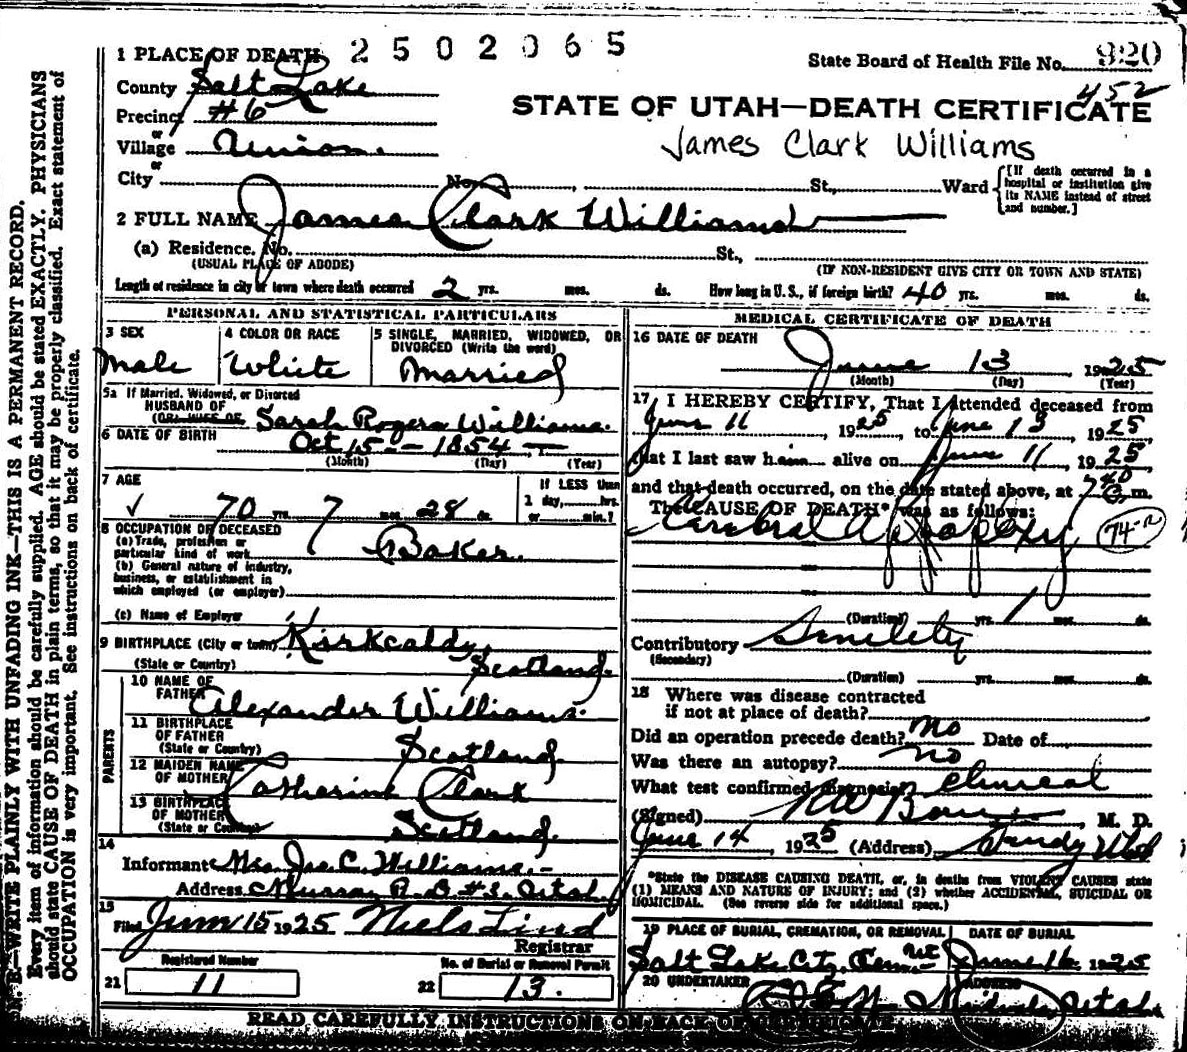 1 PLACE OF DEATH 2502065
State Board of Health File No. 920
County Salt Lake
452
Precinct #6
STATE OF UTAH—DEATH CERTIFICATE
or
Village Union.
James Clark Williams
or
City No. , St., Ward
[If death occurred in a hospital or institution give its NAME instead of street and number.]
2 FULL NAME James Clark Williams
(a) Residence. No. St.,
(USUAL PLACE OF ABODE) (IF NON-RESIDENT GIVE CITY OR TOWN AND STATE)
Length of residence in city or town where death occurred 2 yrs. mos. ds. How long in U. S., if foreign birth? 40 yrs. mos. ds.
PERSONAL AND STATISTICAL PARTICULARS
3 SEX
Male
4 COLOR OR RACE
White
5 SINGLE, MARRIED, WIDOWED, OR
DIVORCED (Write the word)
Married
5a If Married, Widowed, or Divorced
HUSBAND OF
(OR) WIFE OF Sarah Rogers Williams.
6 DATE OF BIRTH Oct 15 - 1854
(Month) (Day) (Year)
7 AGE
70 yrs. 7 mos. 28 ds.
If LESS than
1 day, hrs.
or min.?
8 OCCUPATION OF DECEASED
(a) Trade, profession or
particular kind of work Baker.
(b) General nature of industry,
business, or establishment in
which employed (or employer)
(c) Name of Employer
9 BIRTHPLACE (City or town) Kirkcaldy,
(State or Country) Scotland.
PARENTS
10 NAME OF
FATHER Alexander Williams.
11 BIRTHPLACE
OF FATHER
(State or Country) Scotland.
12 MAIDEN NAME
OF MOTHER Catherine Clark
13 BIRTHPLACE
OF MOTHER
(State or Country) Scotland.
14
Informant Mrs. Jas. C. Williams.
Address Murray R. D. Utah
15
Filed June 15 1925 Niels Lind
Registrar
Registered Number
21 11
No. of Burial or Removal Permit
22 13.
MEDICAL CERTIFICATE OF DEATH
16 DATE OF DEATH
June 13, 1925
(Month) (Day) (Year)
17 I HEREBY CERTIFY, That I attended deceased from
June 11, 1925, to June 13 1925
that I last saw him alive on June 11, 1925,
and that death occurred, on the date stated above, at 740 m.
The CAUSE OF DEATH* was as follows:
Cerebral Apoplexy
(Duration) yrs. 1 ds.
Contributory Senility
(Secondary)
(Duration) yrs. mos. ds.
18 Where was disease contracted
if not at place of death?
Did an operation precede death? No Date of
Was there an autopsy? No
What test confirmed diagnosis? Clinical
(Signed) M. D.
June 14, 1925 (Address) Sandy Utah
*State the DISEASE CAUSING DEATH, or, in deaths from VIOLENT CAUSES state
(1) MEANS AND NATURE OF INJURY; and (2) whether ACCIDENTAL, SUICIDAL OR
HOMICIDAL. (See reverse side for additional space.)
19 PLACE OF BURIAL, CREMATION, OR REMOVAL
Salt Lake City Cem.
DATE OF BURIAL
June 16 1925
20 UNDERTAKER
ADDRESS
Utah
READ CAREFULLY INSTRUCTIONS ON BACK OF CERTIFICATE
N. B.—WRITE PLAINLY WITH UNFADING INK—THIS IS A PERMANENT RECORD.
Every item of information should be carefully supplied. AGE should be stated EXACTLY. PHYSICIANS
should state CAUSE OF DEATH in plain terms, so that it may be properly classified. Exact statement of
OCCUPATION is very important. See instructions on back of certificate.